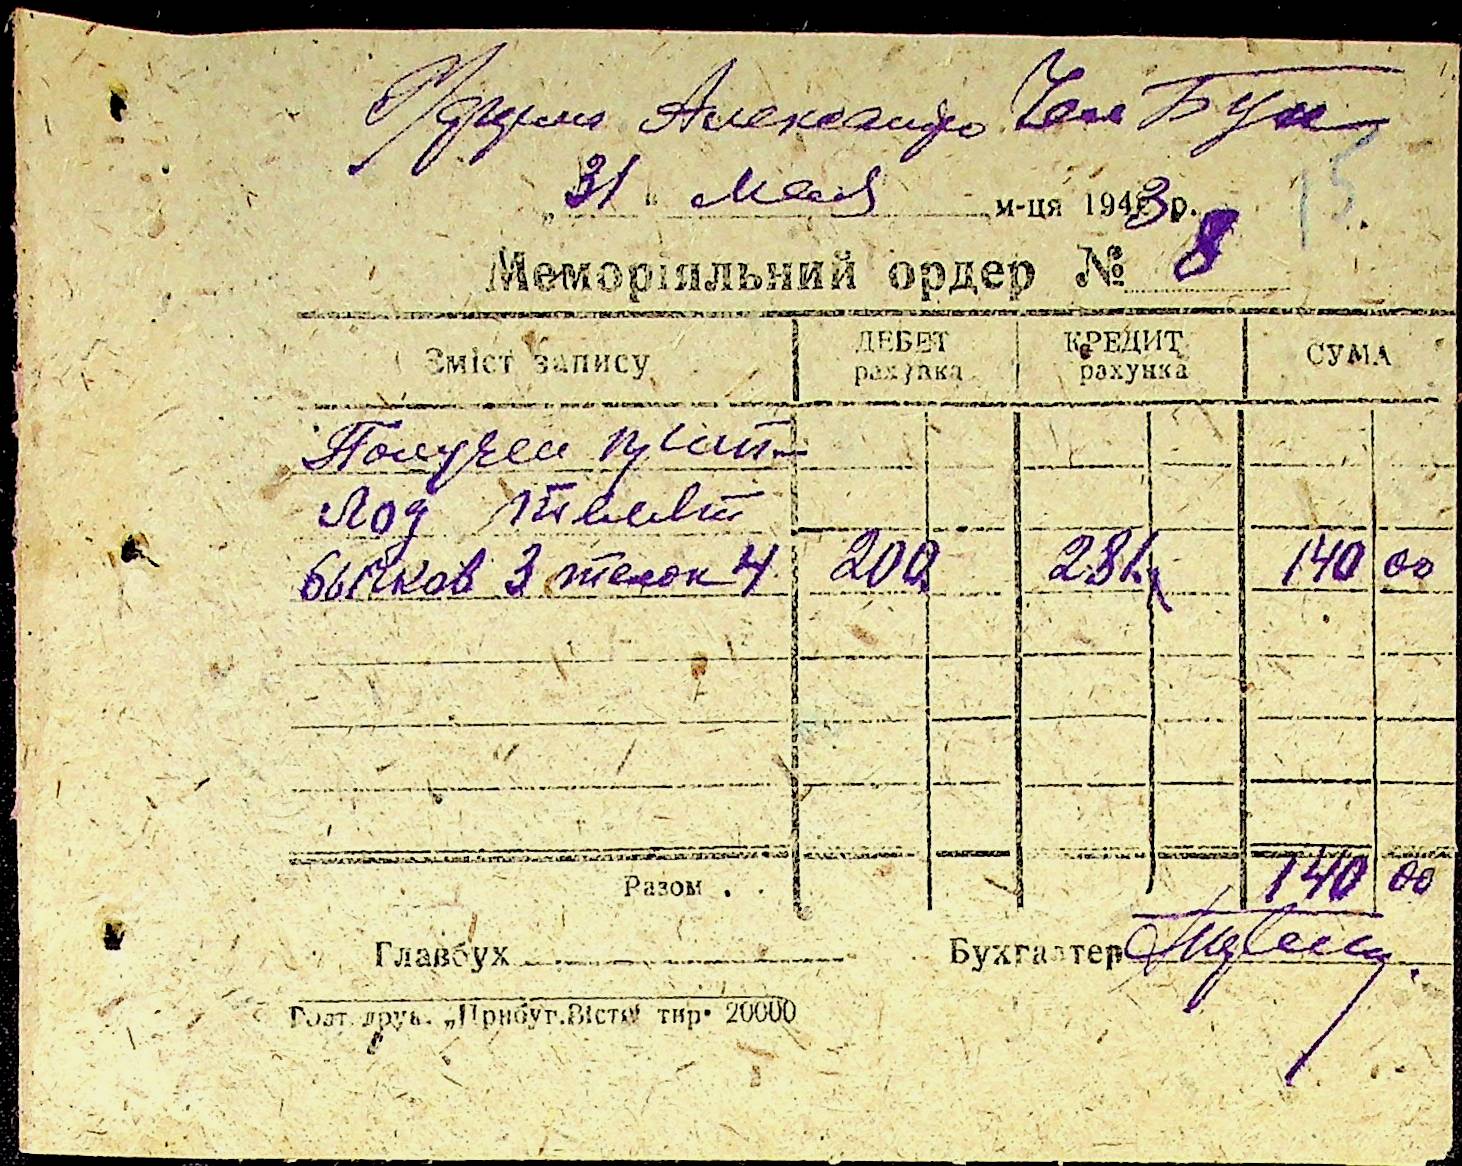 Александро
„ 31 " мая м-ця 1943 р.
15
Меморіяльний ордер № 8
Зміст запису ДЕБЕТ рахунка КРЕДИТ рахунка СУМА
Получен прип-
лод телят
бычков 3 телок 4 200 281 140 00
Разом . 140 00
Главбух Бухгалтер
друк. „Прибуг.Вісти" тир. 20000